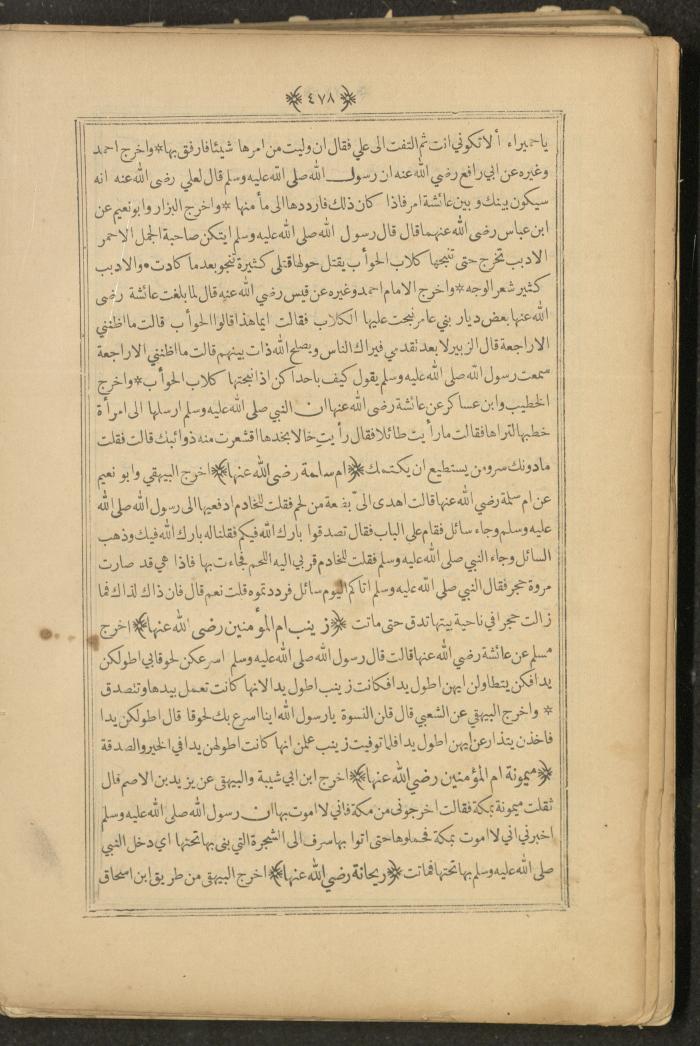 ﴿٤٧٨﴾
ياحميراء ألا تكوني انت ثم التفت الى علي فقال ان وليت من امرها شيئا فارفق بها * واخرج احمد
وغيره عن ابي رافع رضي الله عنه ان رسول الله صلى الله عليه وسلم قال لعلي رضى الله عنه انه
سيكون بينك وبين عائشة امر فاذا كان ذلك فارددها الى مأمنها * واخرج البزار وابو نعيم عن
ابن عباس رضى الله عنهما قال قال رسول الله صلى الله عليه وسلم ايتكن صاحبة الجمل الاحمر
الادبب تخرج حتى تنبحها كلاب الحوأب يقتل حولها قتلى كثيرة تنجو بعد ما كادت • والادبب
كثير شعر الوجه * واخرج الامام احمد وغيره عن قيس رضى الله عنه قال لما بلغت عائشة رضى
الله عنها بعض ديار بني عامر نبحت عليها الكلاب فقالت ايما هذا قالوا الحوأب قالت ما اظنني
الا راجعة قال الزبير لا بعد تقدمي فيراك الناس ويصلح الله ذات بينهم قالت ما اظنني الا راجعة
سمعت رسول الله صلى الله عليه وسلم يقول كيف باحداكن اذا نبحتها كلاب الحوأب * واخرج
الخطيب وابن عساكر عن عائشة رضى الله عنها ان النبي صلى الله عليه وسلم ارسلها الى امرأة
خطبها لتراها فقالت ما رأيت طائلا فقال رأيت خالا بخدها اقشعرت منه ذوائبك قالت فقلت
ما دونك سر ومن يستطيع ان يكتمك ﴿ام سلمة رضى الله عنها﴾ اخرج البيهقي وابو نعيم
عن ام سلمة رضي الله عنها قالت اهدى الىّ بضعة من لحم فقلت للخادم ادفعيها الى رسول الله صلى الله
عليه وسلم وجاء سائل فقام على الباب فقال تصدقوا بارك الله فيكم فقلنا له بارك الله فيك وذهب
السائل وجاء النبي صلى الله عليه وسلم فقلت للخادم قربي اليه اللحم فجاءت بها فاذا هي قد صارت
مروة حجر فقال النبي صلى الله عليه وسلم اتاكم اليوم سائل فرددتموه قلت نعم قال فان ذاك لذاك فما
زالت حجرا في ناحية بيتها تدق حتى ماتت ﴿زينب ام المؤمنين رضى الله عنها﴾ اخرج
مسلم عن عائشة رضى الله عنها قالت قال رسول الله صلى الله عليه وسلم اسرعكن لحوقا بي اطولكن
يدا فكن يتطاولن ايهن اطول يدا فكانت زينب اطول يدا لانها كانت تعمل بيدها وتتصدق
* واخرج البيهقي عن الشعبي قال قلن النسوة يا رسول الله اينا اسرع بك لحوقا قال اطولكن يدا
فاخذن يتذارعن ايهن اطول يدا فلما توفيت زينب علمن انها كانت اطولهن يدا في الخير والصدقة
﴿ميمونة ام المؤمنين رضي الله عنها﴾ اخرج ابن ابي شيبة والبيهقى عن يزيد بن الاصم قال
ثقلت ميمونة بمكة فقالت اخرجونى من مكة فاني لا اموت بها ان رسول الله صلى الله عليه وسلم
اخبرني اني لا اموت بمكة فحملوها حتى اتوا بها سرف الى الشجرة التي بنى بها تحتها اي دخل النبي
صلى الله عليه وسلم بها تحتها فماتت ﴿ريحانة رضي الله عنها﴾ اخرج البيهقى من طريق ابن اسحاق